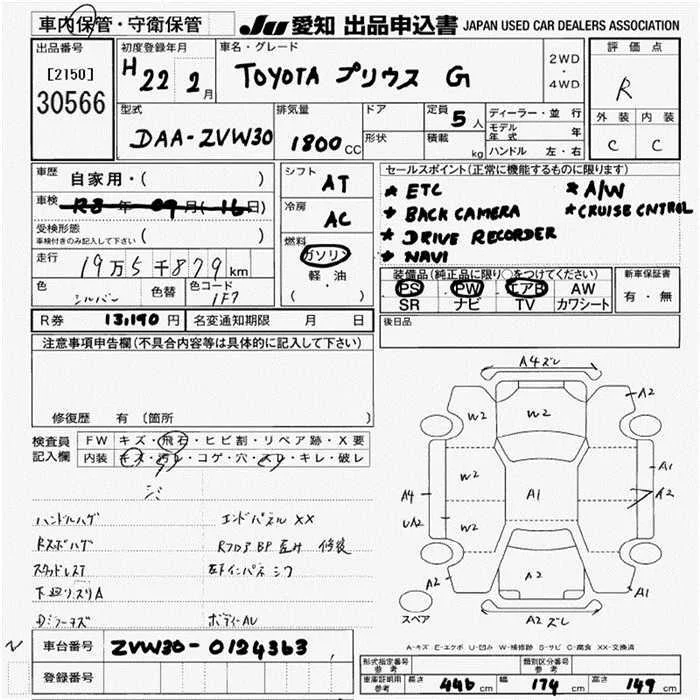 車内保管・守衛保管 JU 愛知 出品申込書 JAPAN USED CAR DEALERS ASSOCIATION
出品番号 初度登録年月 車名・グレード 評価点
[2150] H 22 2月 TOYOTA プリウス G 2WD・4WD R
30566
型式 排気量 ドア 定員 5人 ディーラー・並行 外装 内装
DAA-ZVW30 1800CC 形状 積載 kg モデル年式 年 C C
ハンドル 左・右
車歴 自家用・( ) シフト AT セールスポイント(正常に機能するものに限ります)
車検 R8年 09月(16日) ★ ETC ★ A/W
受検形態 ( ) 冷房 AC ★ BACK CAMERA ★CRUISE CNTROL
車検付きのみ記入して下さい ★ DRIVE RECORDER
走行 19万5千879km 燃料 ガソリン ★ NAVI
軽・油 装備品(純正品に限り○をつけてください) 新車保証書
色 シルバー 色替 色コード 1F7 ( ) PS PW エアB AW 有・無
SR ナビ TV カワシート
R券 13,190円 名変通知期限 月 日 後日品
注意事項申告欄(不具合内容等は具体的に記入して下さい)
修復歴 有 (箇所
検査員 FW キズ・飛石・ヒビ割・リペア跡・X要
記入欄 内装 キズ・汚レ・コゲ・穴・スレ・キレ・破レ
シミ
ハンドルハゲ エンドパネル XX
スタッドレス
下廻りスリA
ボディーAU
A4ズレ
A2
W2 W2
W2 A1 A1
A4 A2
UA2 W2
A2 A2 A1
スペア A2ズレ
A-キズ E-エクボ U-凹み W-補修跡 S-サビ C-腐食 XX-交換済
車台番号 ZVW30-0124363
登録番号
形式指定番号 参考 類別区分番号 参考
車庫証明用 参考 長さ 446cm 幅 174cm 高さ 149cm